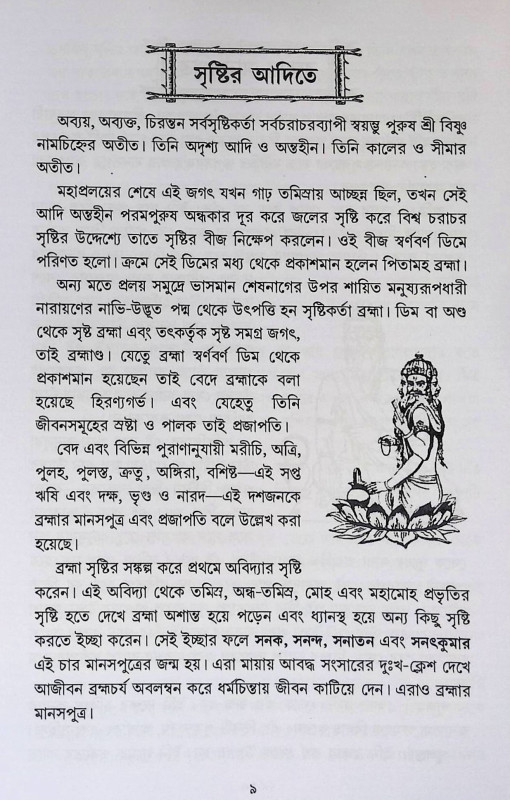 সৃষ্টির আদিতে
অব্যয়, অব্যক্ত, চিরন্তন সর্বসৃষ্টিকর্তা সর্বচরাচরব্যাপী স্বয়ম্ভু পুরুষ শ্রী বিষ্ণু
নামচিহ্নের অতীত। তিনি অদৃশ্য আদি ও অন্তহীন। তিনি কালের ও সীমার
অতীত।
মহাপ্রলয়ের শেষে এই জগৎ যখন গাঢ় তমিস্রায় আচ্ছন্ন ছিল, তখন সেই
আদি অন্তহীন পরমপুরুষ অন্ধকার দূর করে জলের সৃষ্টি করে বিশ্ব চরাচর
সৃষ্টির উদ্দেশ্যে তাতে সৃষ্টির বীজ নিক্ষেপ করলেন। ওই বীজ স্বর্ণবর্ণ ডিমে
পরিণত হলো। ক্রমে সেই ডিমের মধ্য থেকে প্রকাশমান হলেন পিতামহ ব্রহ্মা।
অন্য মতে প্রলয় সমুদ্রে ভাসমান শেষনাগের উপর শায়িত মনুষ্যরূপধারী
নারায়ণের নাভি-উদ্ভূত পদ্ম থেকে উৎপত্তি হন সৃষ্টিকর্তা ব্রহ্মা। ডিম বা অণ্ড
থেকে সৃষ্ট ব্রহ্মা এবং তৎকর্তৃক সৃষ্ট সমগ্র জগৎ,
তাই ব্রহ্মাণ্ড। যেতে্ু ব্রহ্মা স্বর্ণবর্ণ ডিম থেকে
প্রকাশমান হয়েছেন তাই বেদে ব্রহ্মাকে বলা
হয়েছে হিরণ্যগর্ভ। এবং যেহেতু তিনি
জীবনসমূহের স্রষ্টা ও পালক তাই প্রজাপতি।
বেদ এবং বিভিন্ন পুরাণানুযায়ী মরীচি, অত্রি,
পুলহ, পুলস্ত, ক্রতু, অঙ্গিরা, বশিষ্ট—এই সপ্ত
ঋষি এবং দক্ষ, ভৃগু ও নারদ—এই দশজনকে
ব্রহ্মার মানসপুত্র এবং প্রজাপতি বলে উল্লেখ করা
হয়েছে।
ব্রহ্মা সৃষ্টির সঙ্কল্প করে প্রথমে অবিদ্যার সৃষ্টি
করেন। এই অবিদ্যা থেকে তমিস্র, অন্ধ-তমিস্র, মোহ এবং মহামোহ প্রভৃতির
সৃষ্টি হতে দেখে ব্রহ্মা অশান্ত হয়ে পড়েন এবং ধ্যানস্থ হয়ে অন্য কিছু সৃষ্টি
করতে ইচ্ছা করেন। সেই ইচ্ছার ফলে সনক, সনন্দ, সনাতন এবং সনৎকুমার
এই চার মানসপুত্রের জন্ম হয়। এরা মায়ায় আবদ্ধ সংসারের দুঃখ-ক্লেশ দেখে
আজীবন ব্রহ্মচর্য অবলম্বন করে ধর্মচিন্তায় জীবন কাটিয়ে দেন। এরাও ব্রহ্মার
মানসপুত্র।
৯